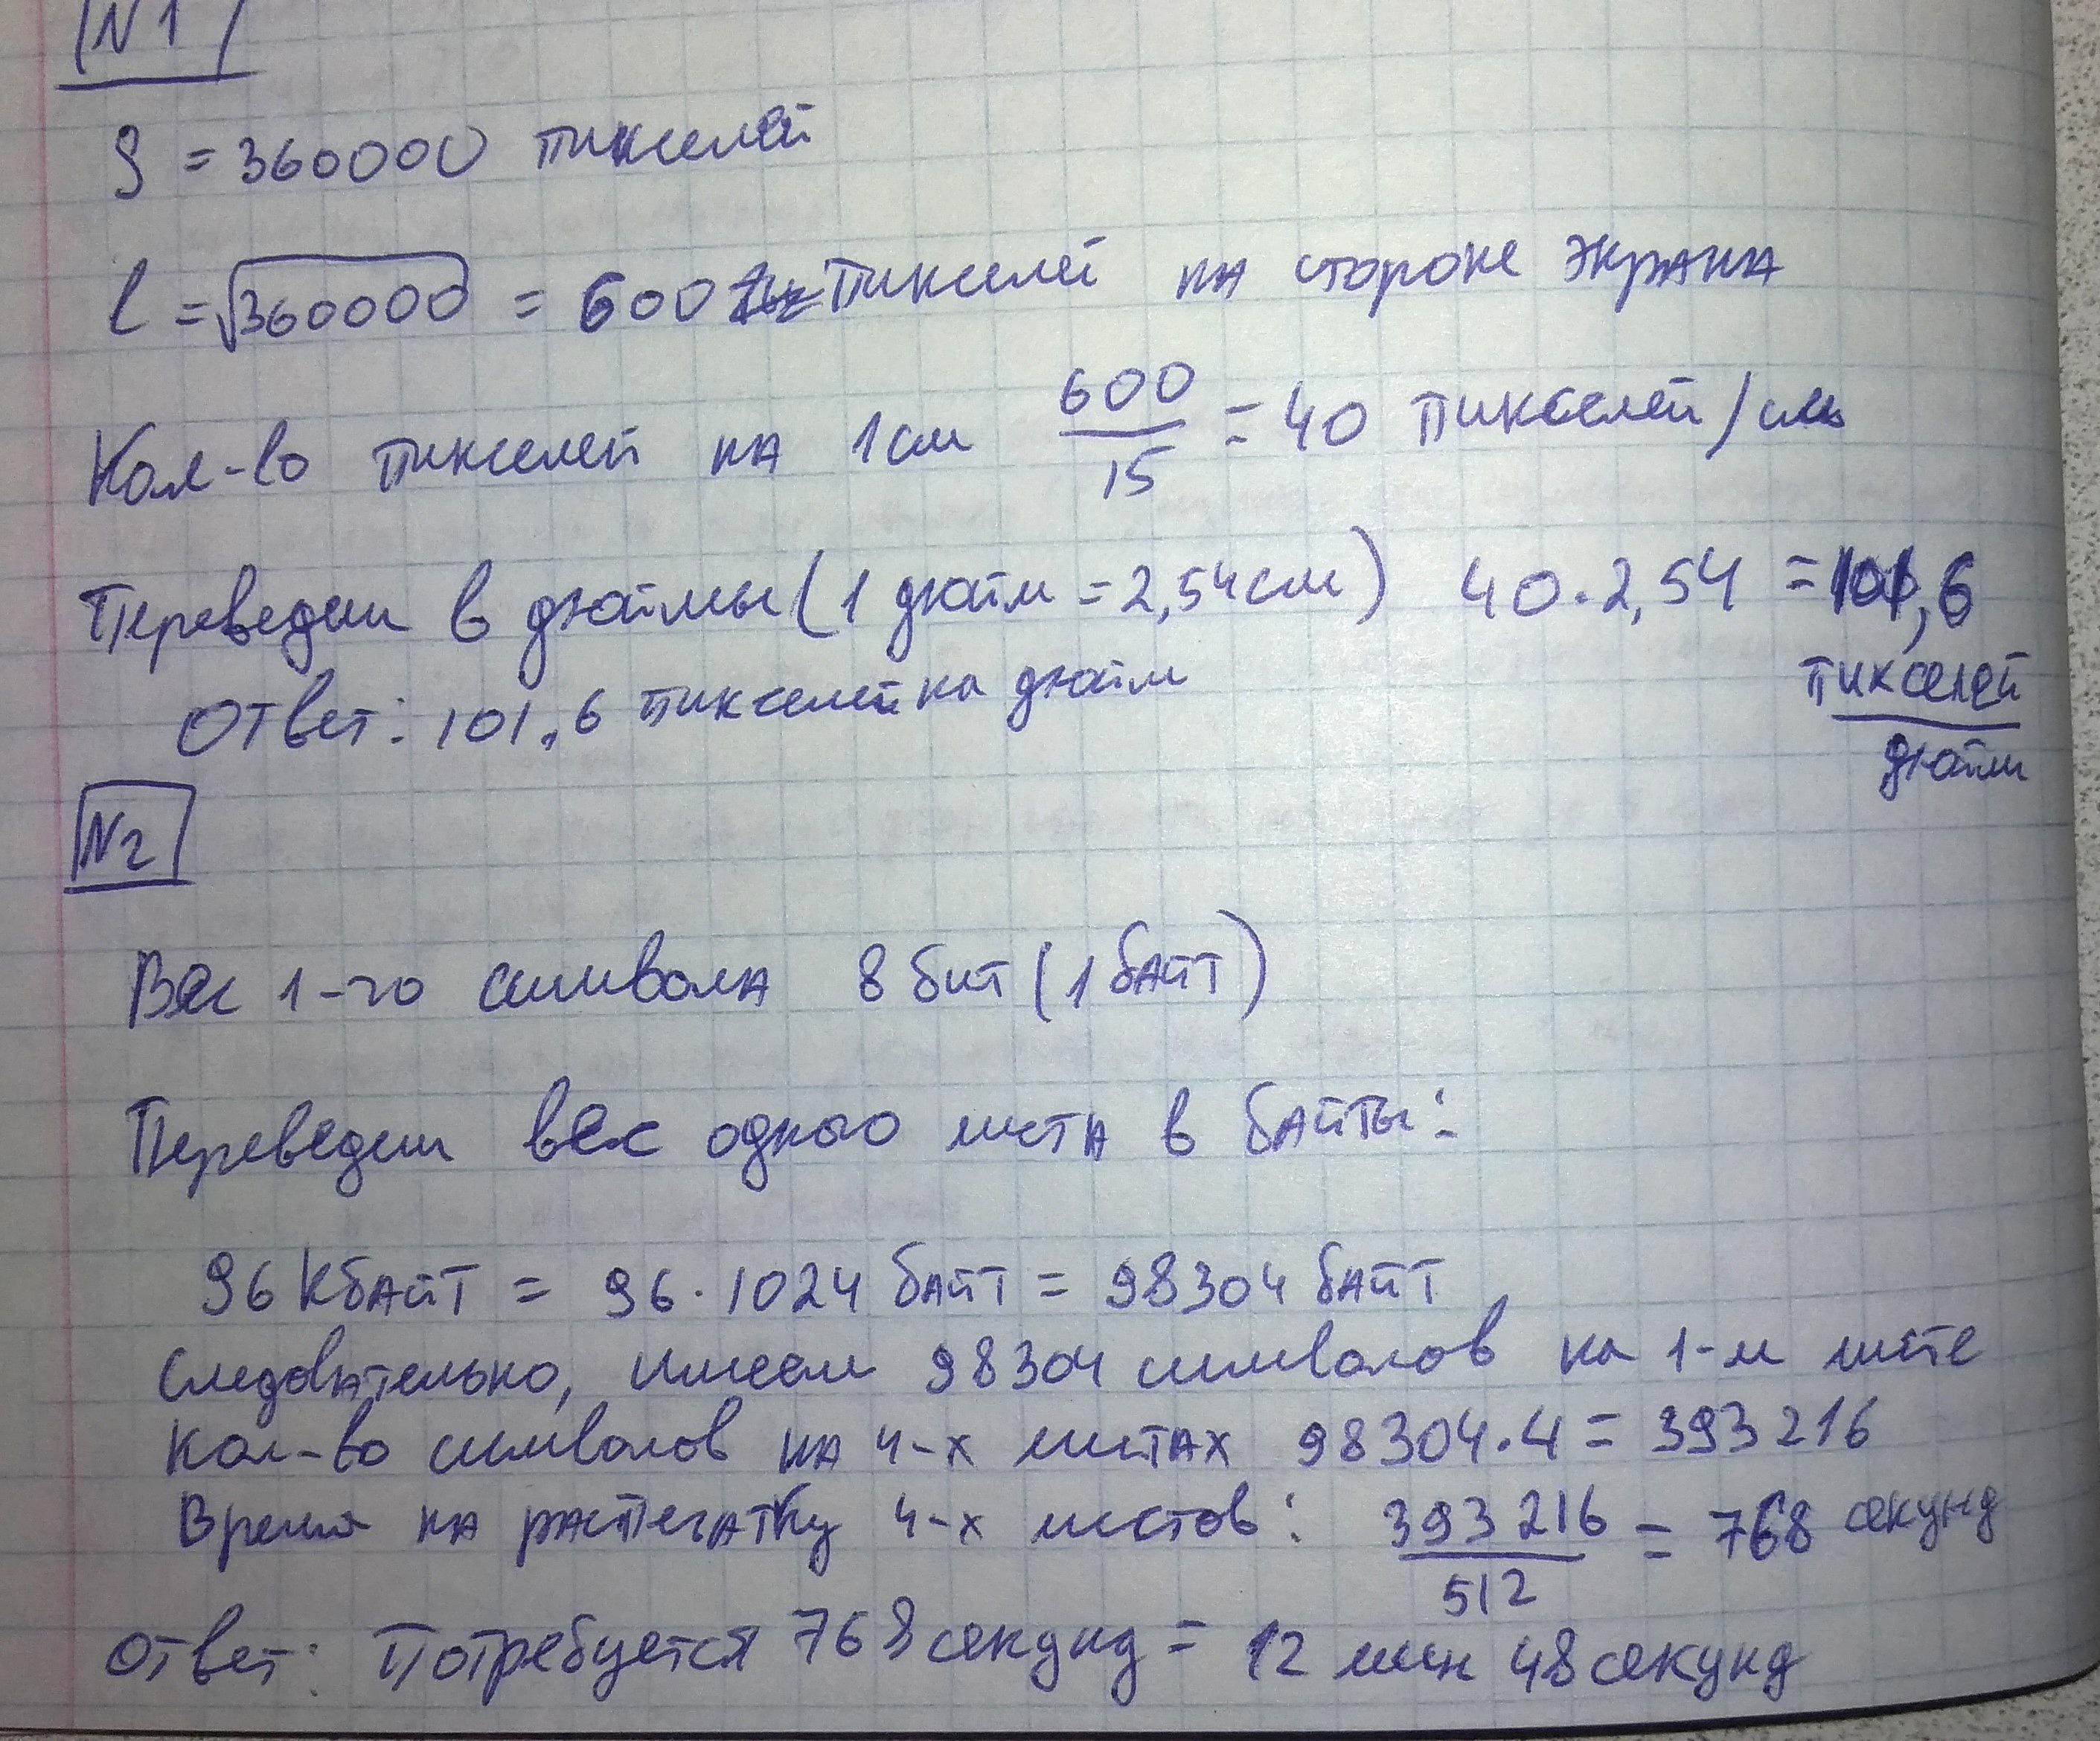 N1
S = 360000 пикселей
l = √360000 = 600 пикселей на стороне экрана
Кол-во пикселей на 1 см 600/15 = 40 пикселей/см
Переведем в дюймы (1 дюйм = 2,54 см) 40·2,54 = 101,6 пикселей/дюйм
Ответ: 101,6 пикселей на дюйм
N2
Вес 1-го символа 8 бит (1 байт)
Переведем вес одного листа в байты:
96 Кбайт = 96·1024 байт = 98304 байт
Следовательно, имеем 98304 символов на 1-м листе
Кол-во символов на 4-х листах 98304·4 = 393216
Время на распечатку 4-х листов: 393216/512 = 768 секунд
Ответ: Потребуется 768 секунд = 12 мин 48 секунд